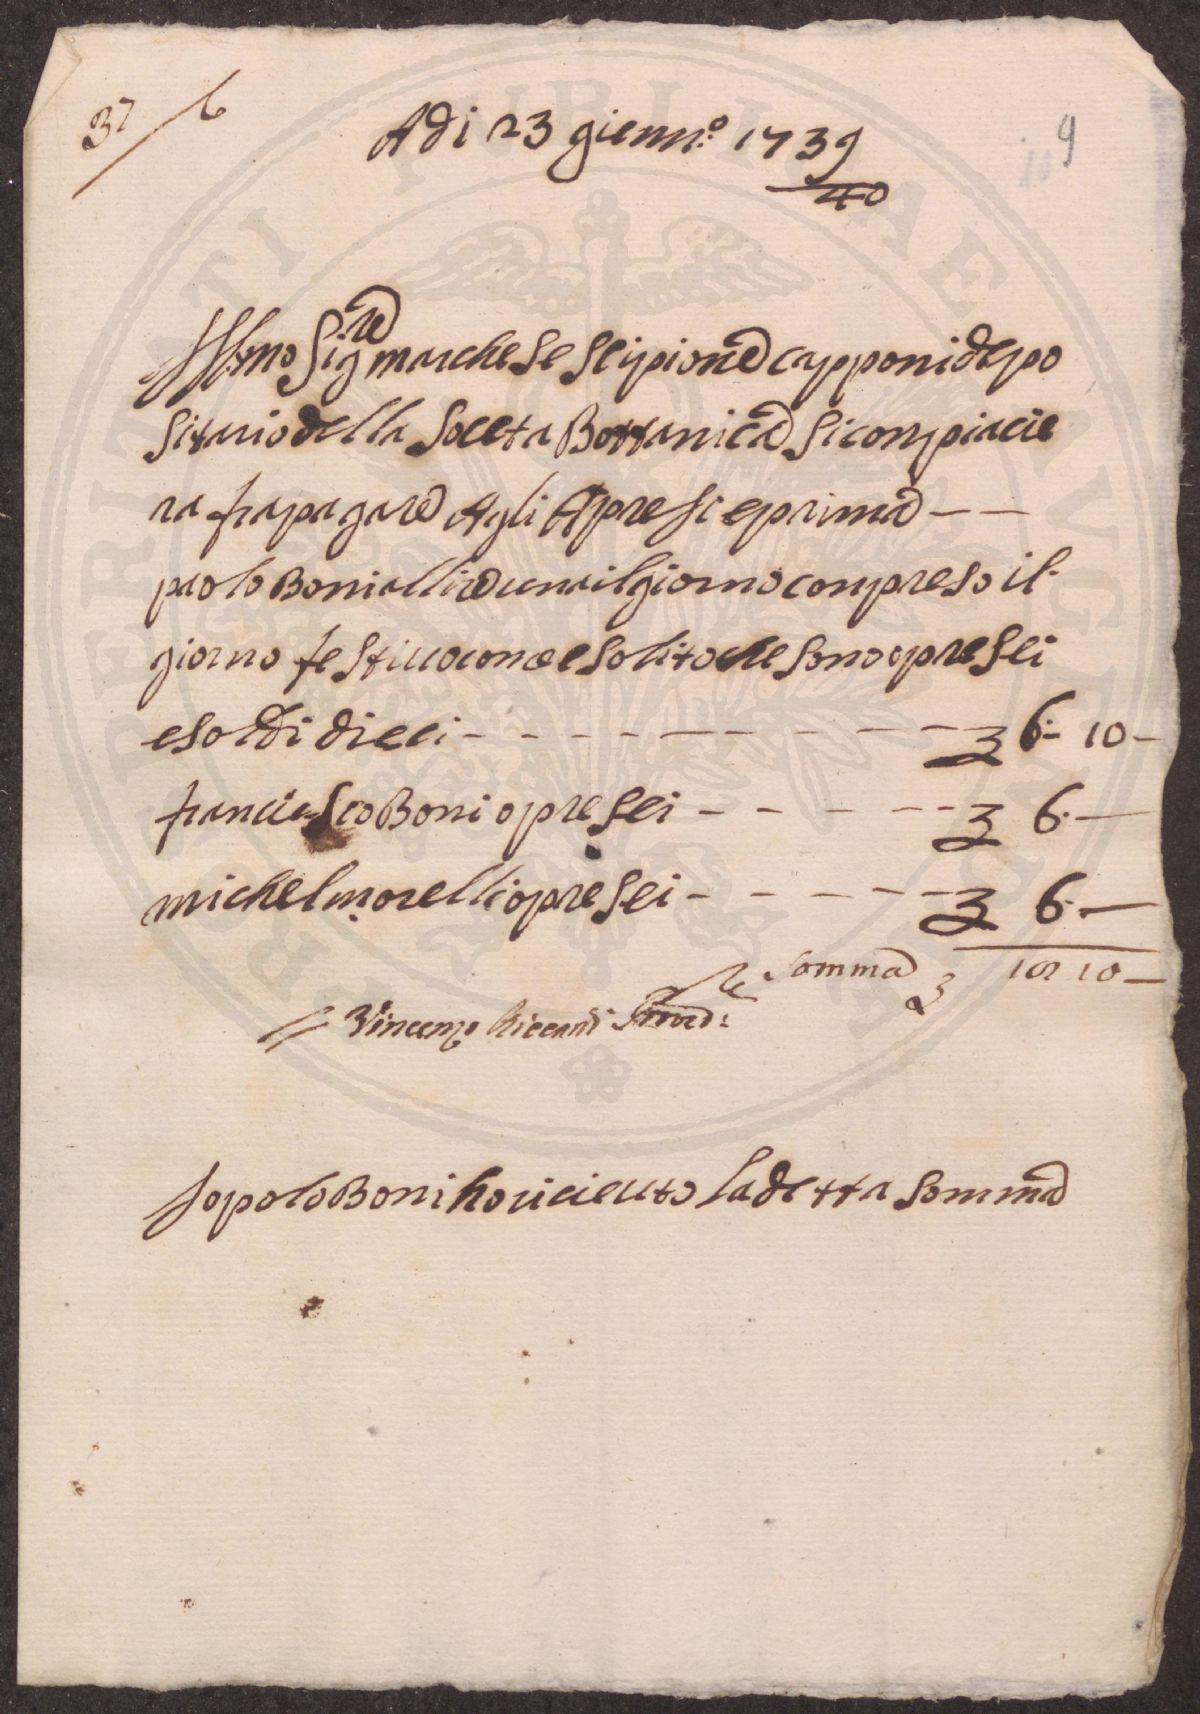 37/6
9
Adi 23 gienn:o 1739
40
Illmo Sigre marchese Scipione capponi depo
sitario della Soceta Bottanica si conpiacie
ra fra pagare Agli Apresi e prima
paolo Boni alire una il giorno conpreso il
giorno festiuo come e solito che sono opre sei
e soldi dieci 3 6: 10
franciesco Boni opre sei 3 6:
michel morelli opre sei 3 6:
somma 3 18 10
Vincenzo Riccardi Proved:re
Jo polo Boni ho riceuto la detta somma